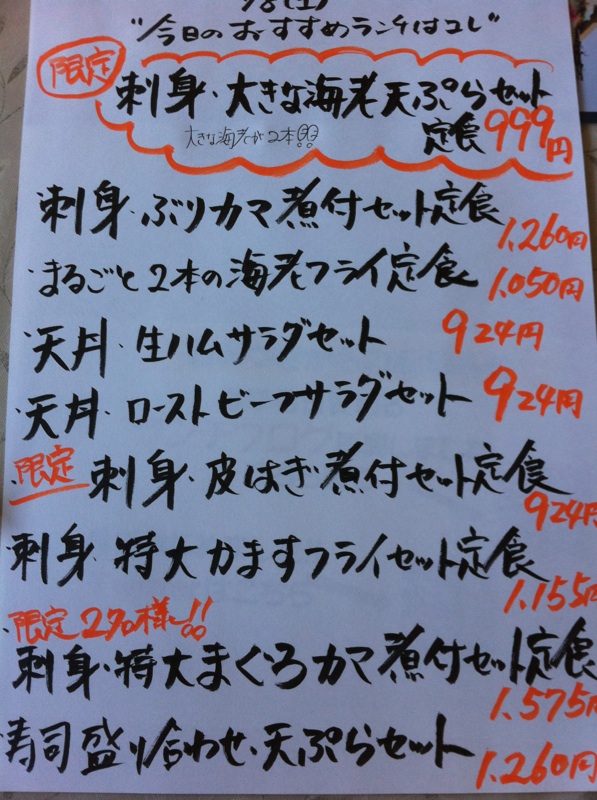 "今日のおすすめランチはコレ"
限定
刺身・大きな海老天ぷらセット
大きな海老が2本!!
定食 999円
・刺身・ぶりカマ煮付セット定食
1.260円
・まるごと2本の海老フライ定食
1.050円
・天丼・生ハムサラダセット 924円
・天丼・ローストビーフサラダセット 924円
・限定 刺身・皮はぎ煮付セット定食
924円
・刺身・特大かますフライセット定食
1.155円
・限定2名様!!
刺身・特大まぐろカマ煮付セット定食
1.575円
・寿司盛り合わせ、天ぷらセット
1.260円